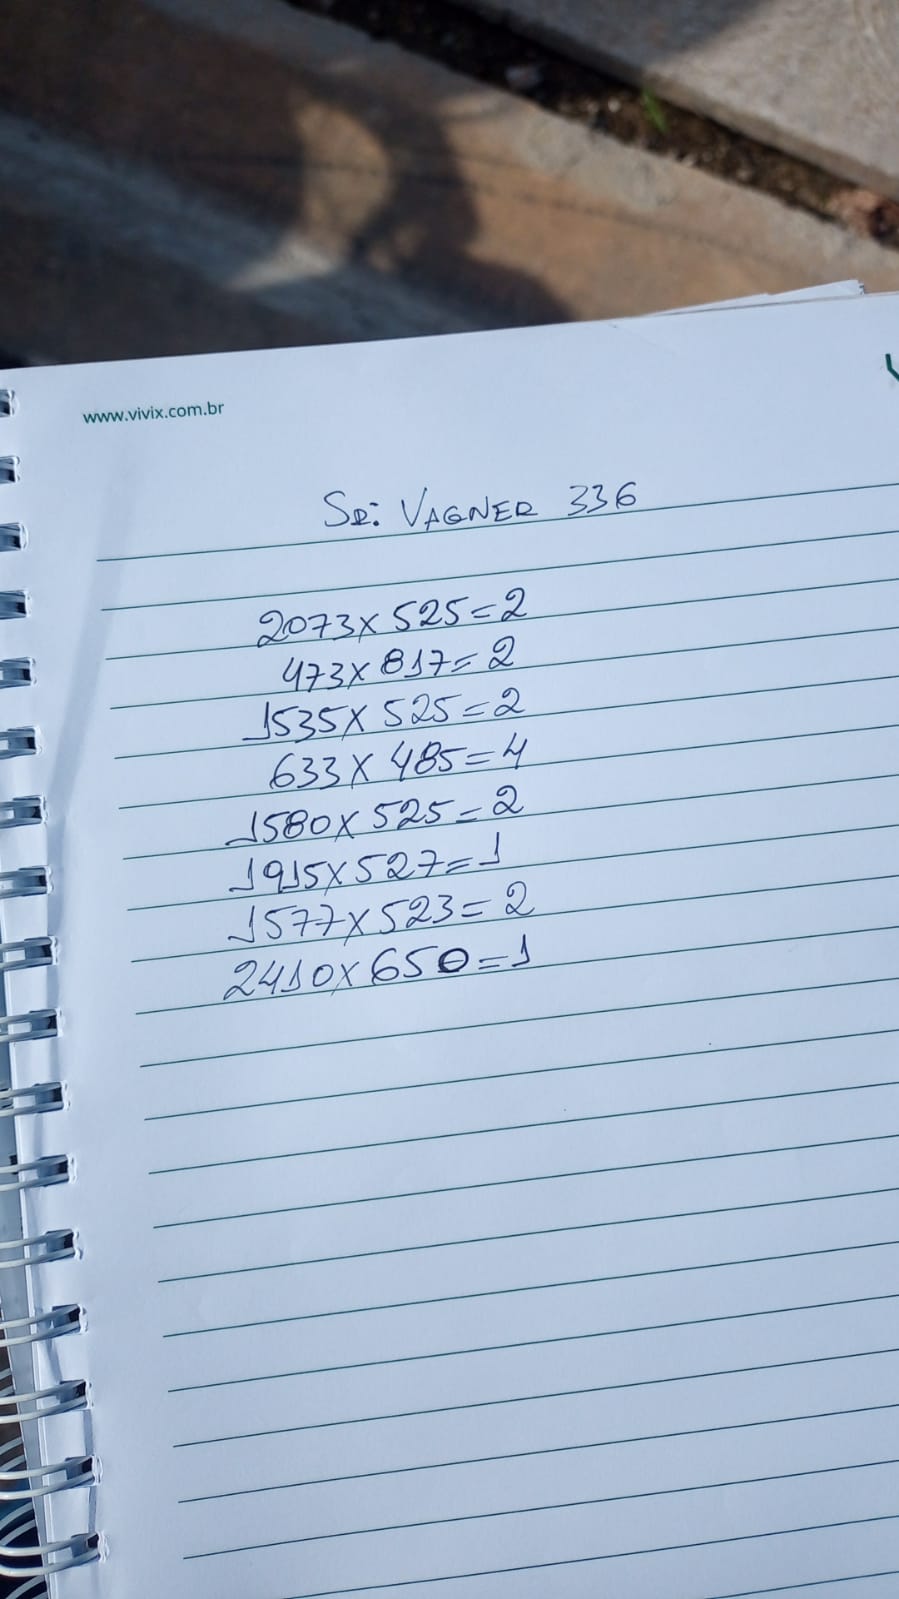 www.vivix.com.br
SR: VAGNER 336
2073x 525=2
473x 817=2
1535x 525=2
633x 485=4
1580x 525=2
1915x527=1
1577x523=2
2410x650=1